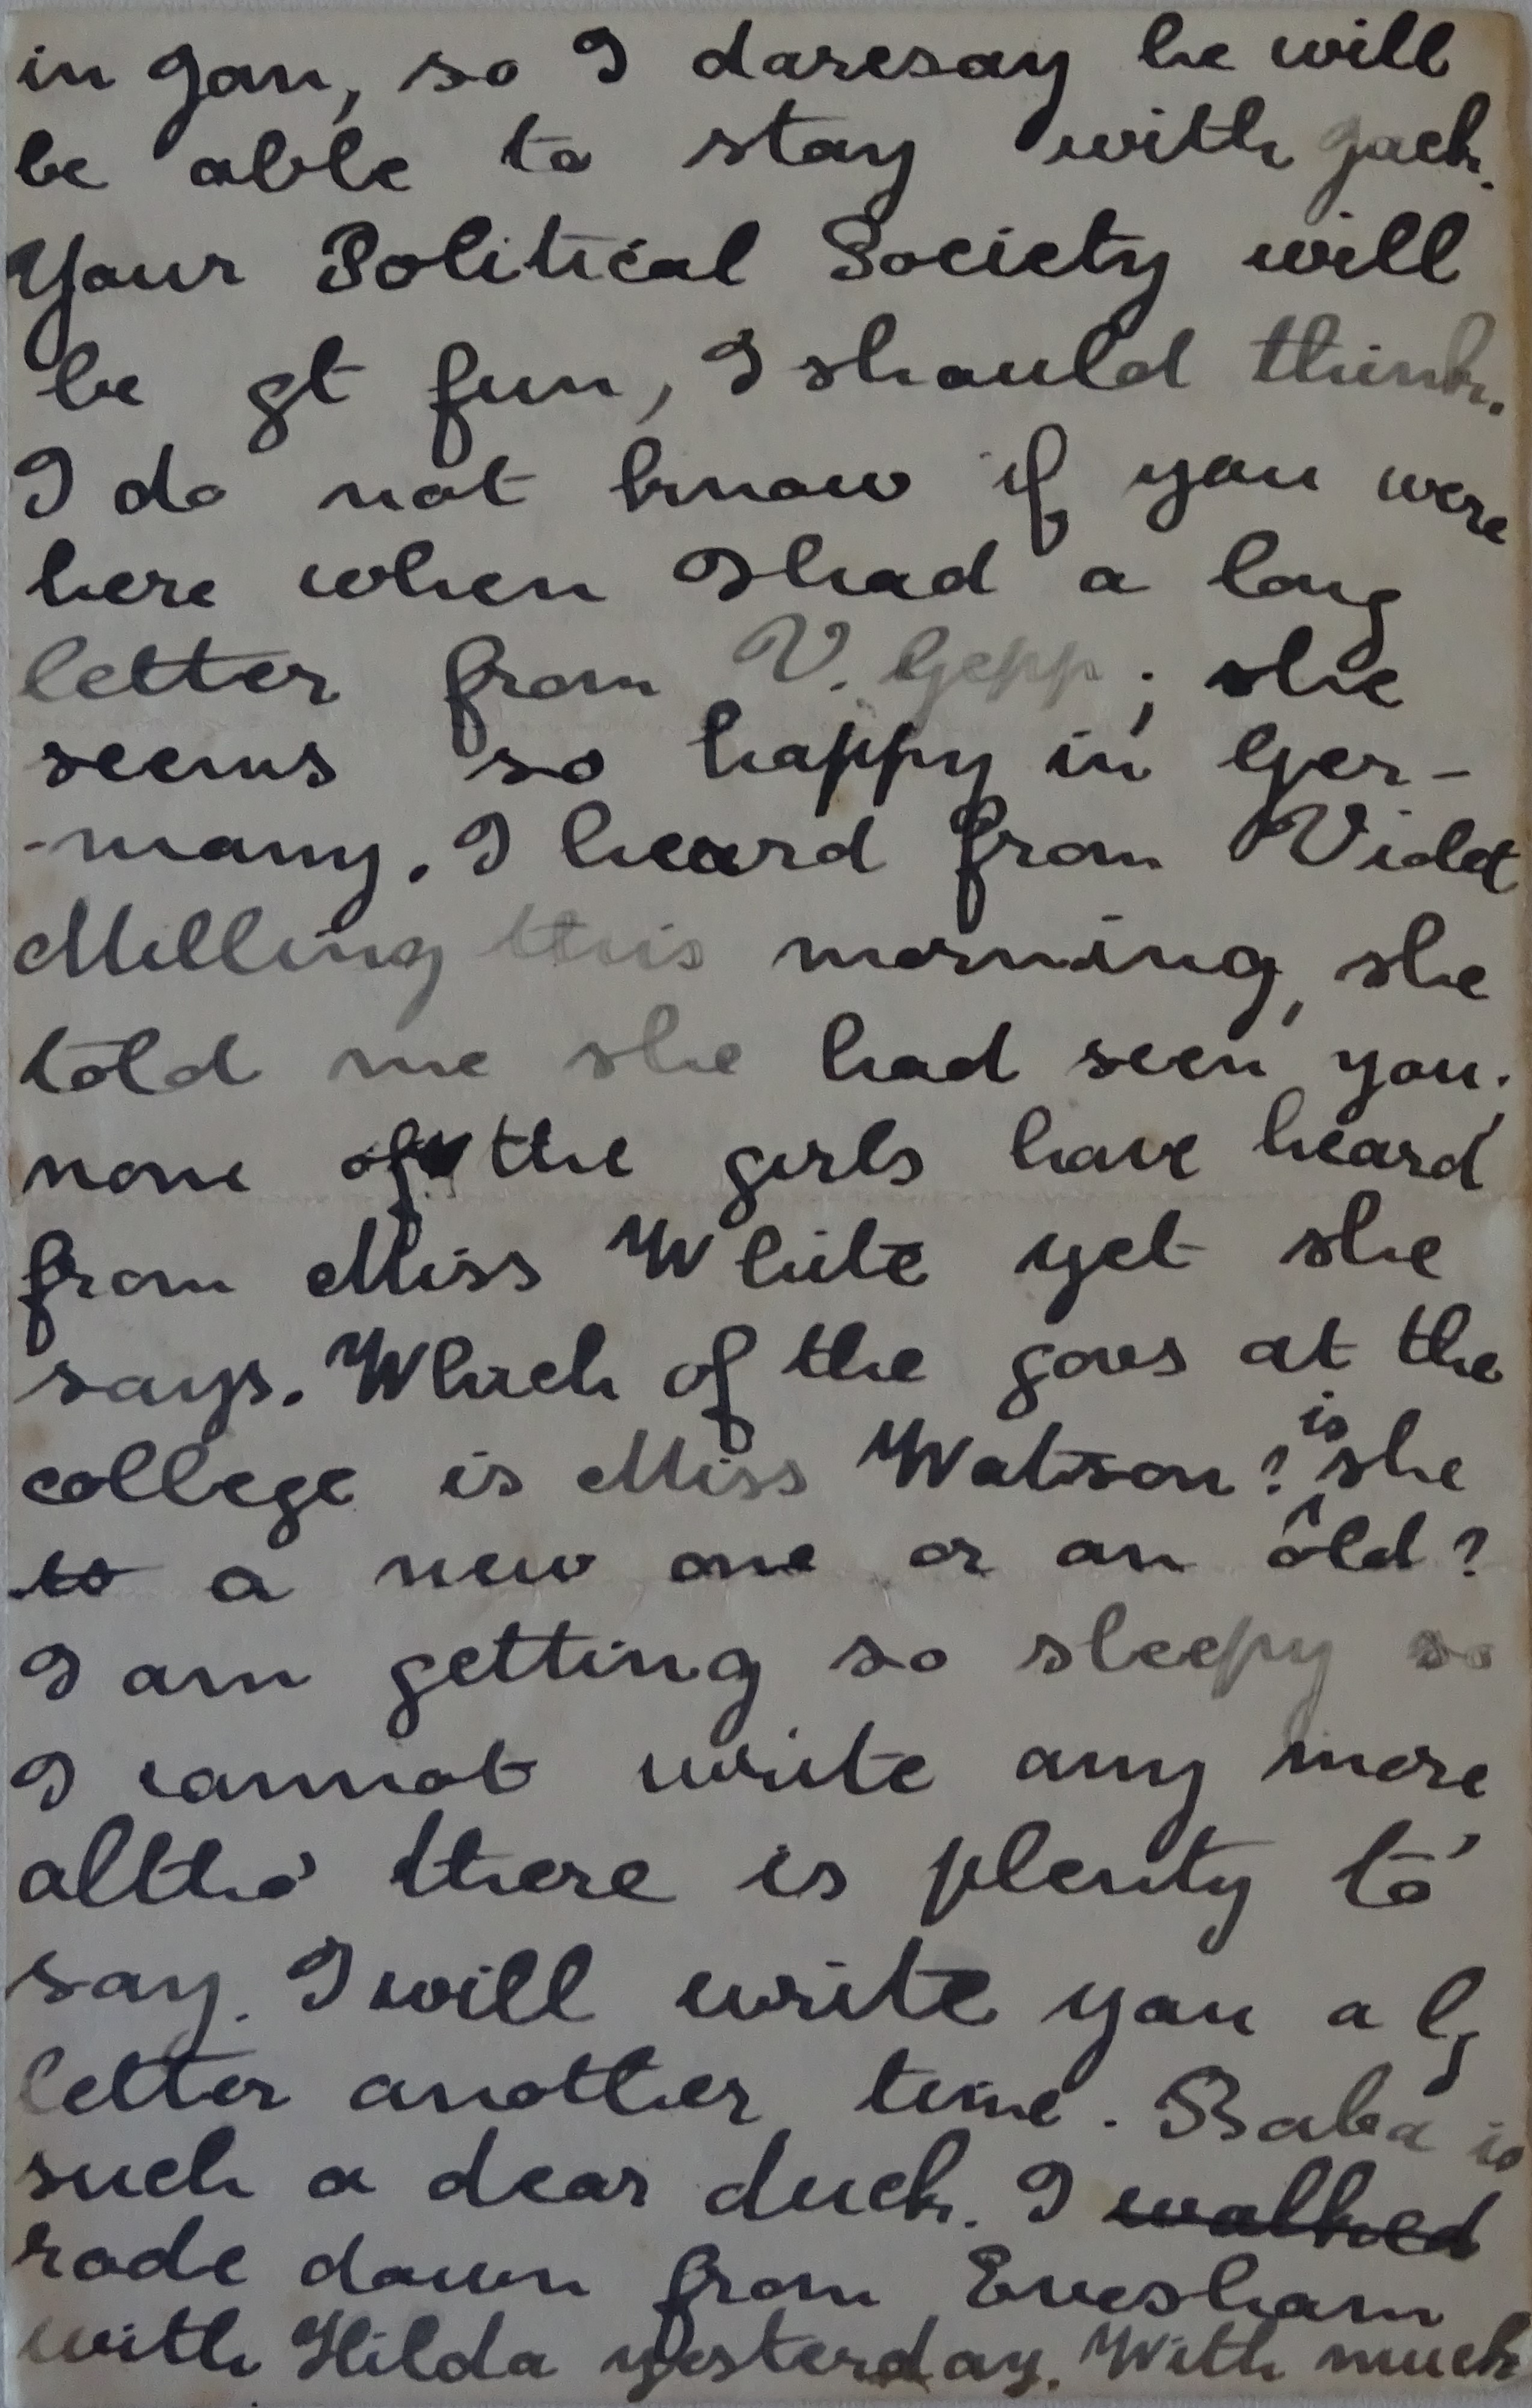 in Jan, so I daresay he will
be able to stay with Jack.
Your Political Society will
be gt fun, I should think.
I do not know if you were
here when I had a long
letter from V. Gepp; she
seems so happy in Ger-
-many. I heard from Violet
Milling this morning, she
told me she had seen you;
none of the girls have heard
from Miss White yet she
says. Which of the govs at the
college is Miss Watson? is she
to a new one or an old?
I am getting so sleepy so
I cannot write any more
altho' there is plenty to
say. I will write you a lg
letter another time. Baba is
such a dear duck. I walked
rode down from Evesham
with Hilda yesterday. With much